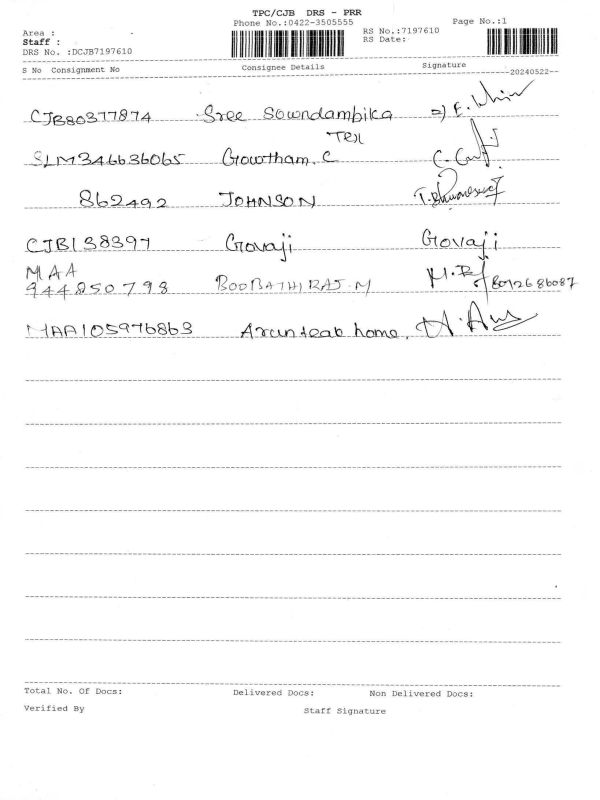 TPC/CJB DRS - PRR
Phone No.:0422-3505555 Page No.:1
Area :
Staff :
DRS No. :DCJB7197610
RS No.:7197610
RS Date:
S No Consignment No Consignee Details Signature
--20240522--
CJB80377874 Sree Sowndambika
Tex
SLM346636065 Gowtham. C
862492 JOHNSON
CJB138397 Govaji Govaji
MAA
944850798 BOOBATHIRAJ.M M.Rj 8072686087
MAA105976863 Arun teak home.
Total No. Of Docs: Delivered Docs: Non Delivered Docs:
Verified By Staff Signature